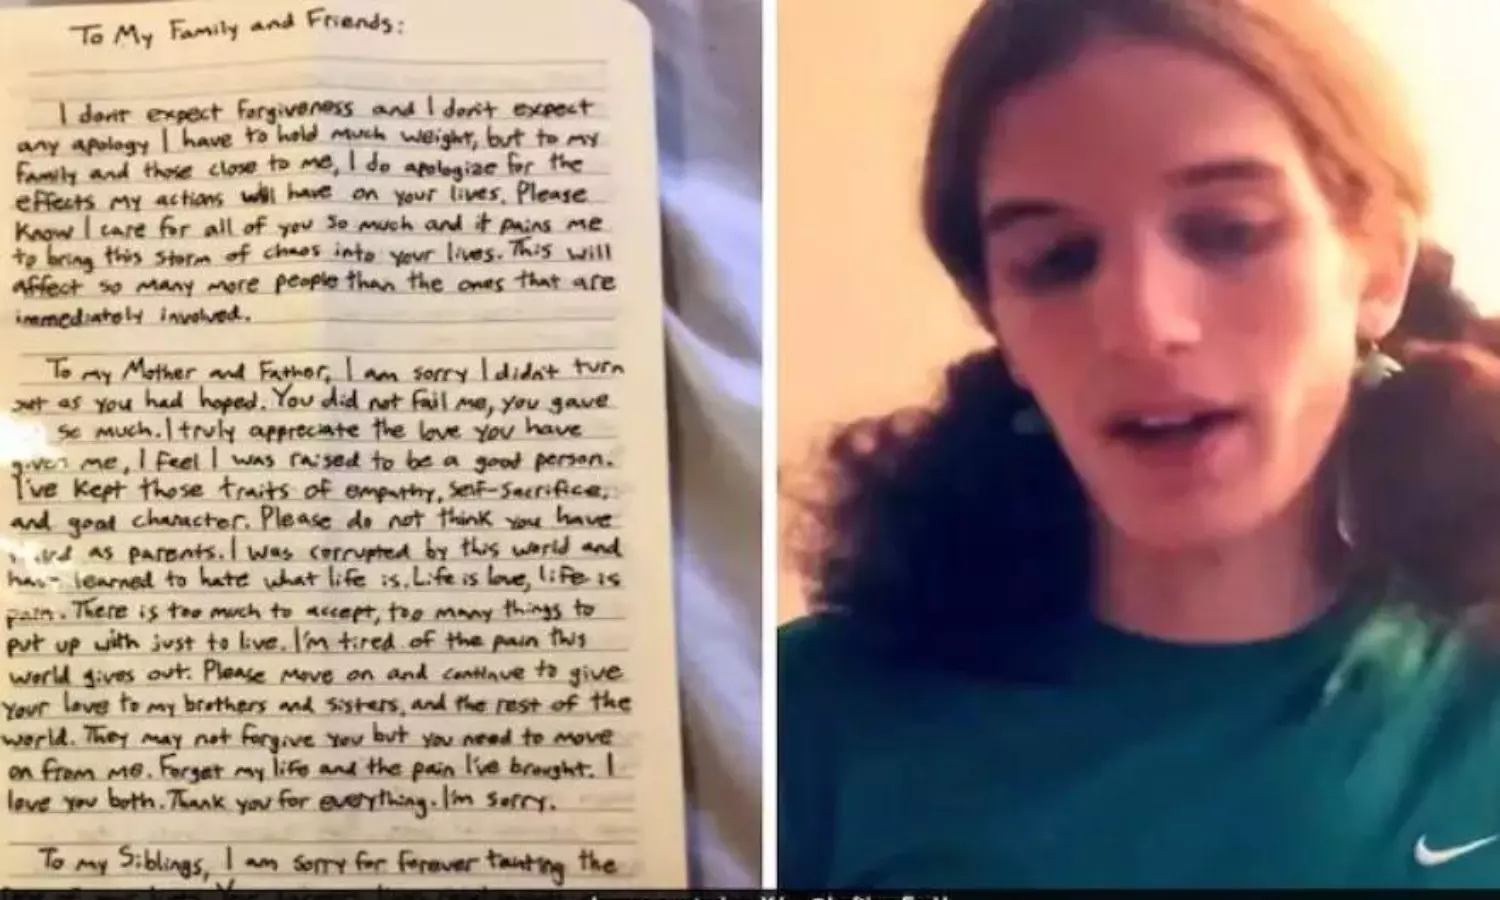 To My Family and Friends:
I don't expect forgiveness and I don't expect
any apology I have to hold much weight, but to my
family and those close to me, I do apologize for the
effects my actions will have on your lives. Please
know I care for all of you so much and it pains me
to bring this storm of chaos into your lives. This will
affect so many more people than the ones that are
immediately involved.
To my Mother and Father, I am sorry I didn't turn
out as you had hoped. You did not fail me, you gave
so much. I truly appreciate the love you have
given me, I feel I was raised to be a good person.
I've kept those traits of empathy, self-sacrifice,
and good character. Please do not think you have
as parents. I was corrupted by this world and
have learned to hate what life is. Life is love, life is
pain. There is too much to accept, too many things to
put up with just to live. I'm tired of the pain this
world gives out. Please move on and continue to give
your love to my brothers and sisters, and the rest of the
world. They may not forgive you but you need to move
on from me. Forget my life and the pain I've brought. I
love you both. Thank you for everything. I'm sorry.
To my Siblings, I am sorry for forever tanting the